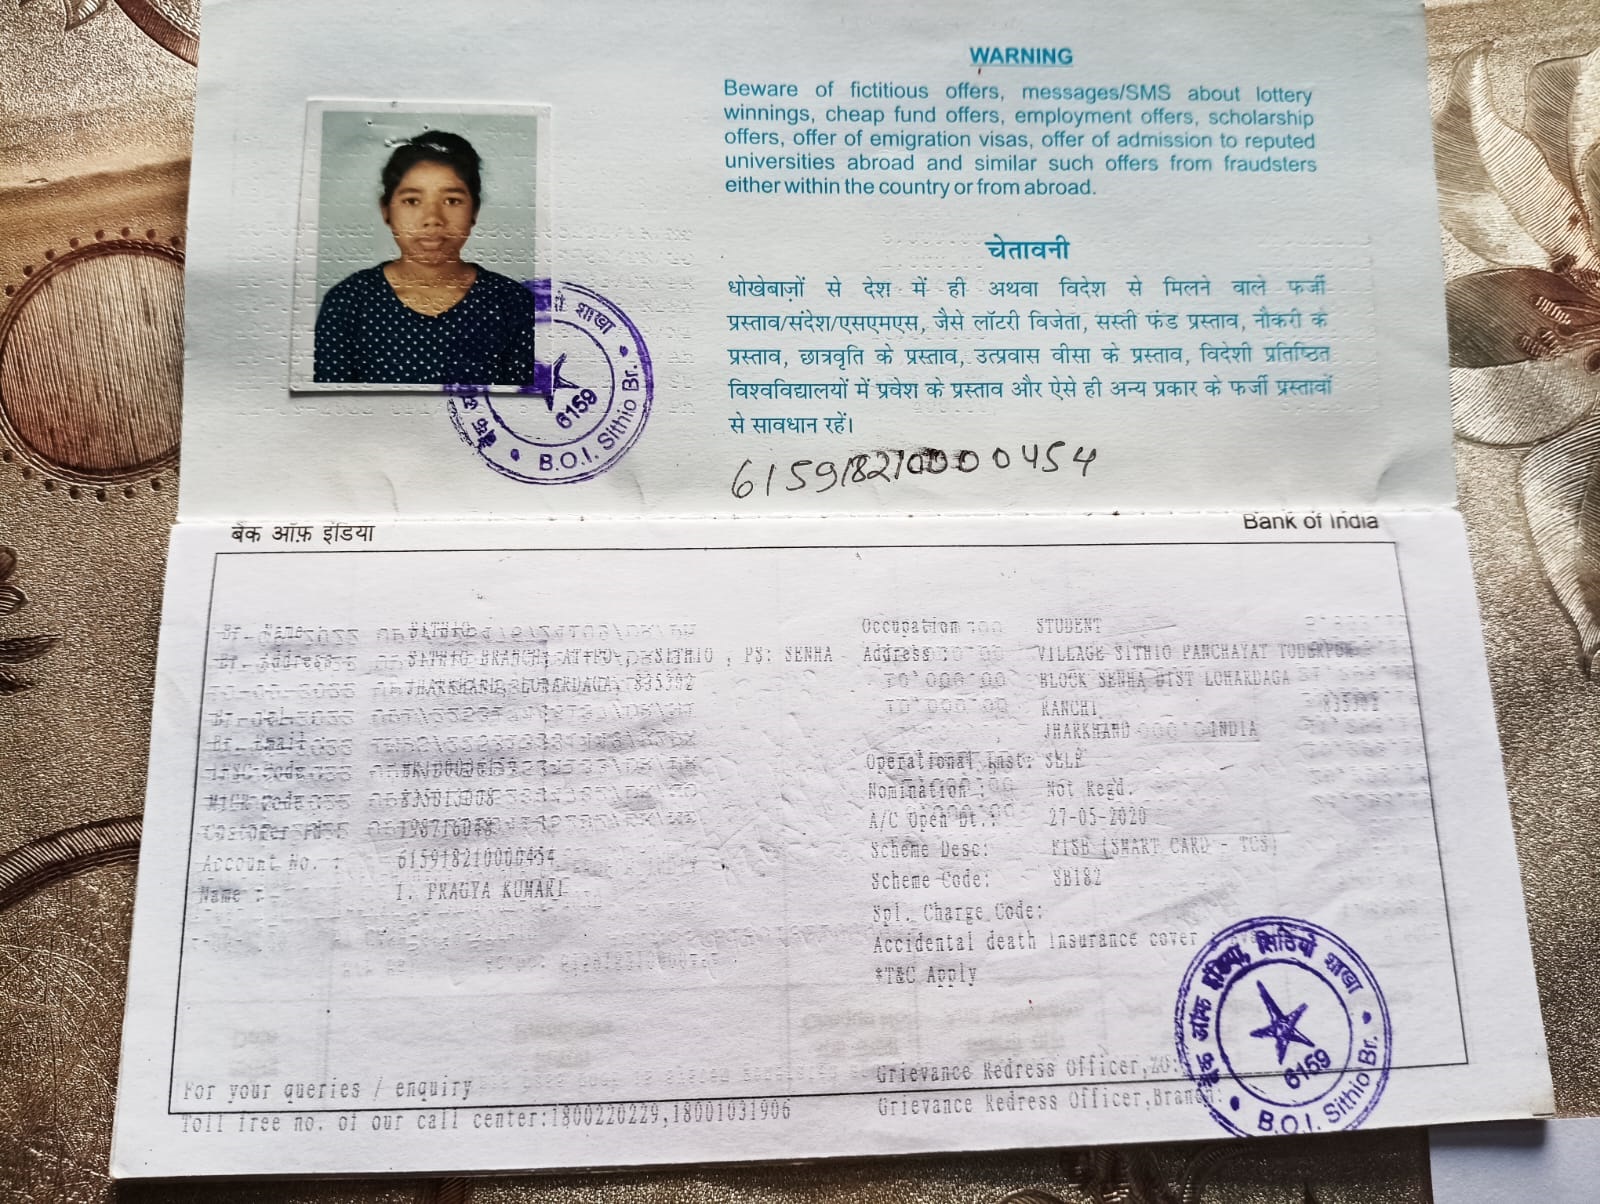 WARNING
Beware of fictitious offers, messages/SMS about lottery
winnings, cheap fund offers, employment offers, scholarship
offers, offer of emigration visas, offer of admission to reputed
universities abroad and similar such offers from fraudsters
either within the country or from abroad.
चेतावनी
धोखेबाज़ों से देश में ही अथवा विदेश से मिलने वाले फर्जी
प्रस्ताव/संदेश/एसएमएस, जैसे लॉटरी विजेता, सस्ती फंड प्रस्ताव, नौकरी के
प्रस्ताव, छात्रवृति के प्रस्ताव, उत्प्रवास वीसा के प्रस्ताव, विदेशी प्रतिष्ठित
विश्वविद्यालयों में प्रवेश के प्रस्ताव और ऐसे ही अन्य प्रकार के फर्जी प्रस्तावों
से सावधान रहें।
शाखा
6159
B.O.I. Sithio Br.
615918210000454
बैंक ऑफ़ इंडिया
Bank of India
Br. Address
SITHIO BRANCH, AT+PO, SITHIO , PS: SENHA
JHARKHAND, LOHARDAGA, 835302
Account No. : 615918210000454
Name : 1. PRAGYA KUMARI
Occupation STUDENT
Address: VILLAGE SITHIO PANCHAYAT
BLOCK SENHA DIST LOHARDAGA
RANCHI 835302
JHARKHAND INDIA
Operational Inst: SELF
Nomination : Not Regd.
A/C Open Dt.: 27-05-2020
Scheme Desc: (SMART CARD - TCS)
Scheme Code: SB182
Spl. Charge Code:
Accidental death Insurance cover
*T&C Apply
For your queries / enquiry
Toll free no. of our call center:1800220229,18001031906
Grievance Redress Officer,ZO:
Grievance Redress Officer,Branch:
बैंक ऑफ इंडिया, सिठियो शाखा
6159
B.O.I. Sithio Br.